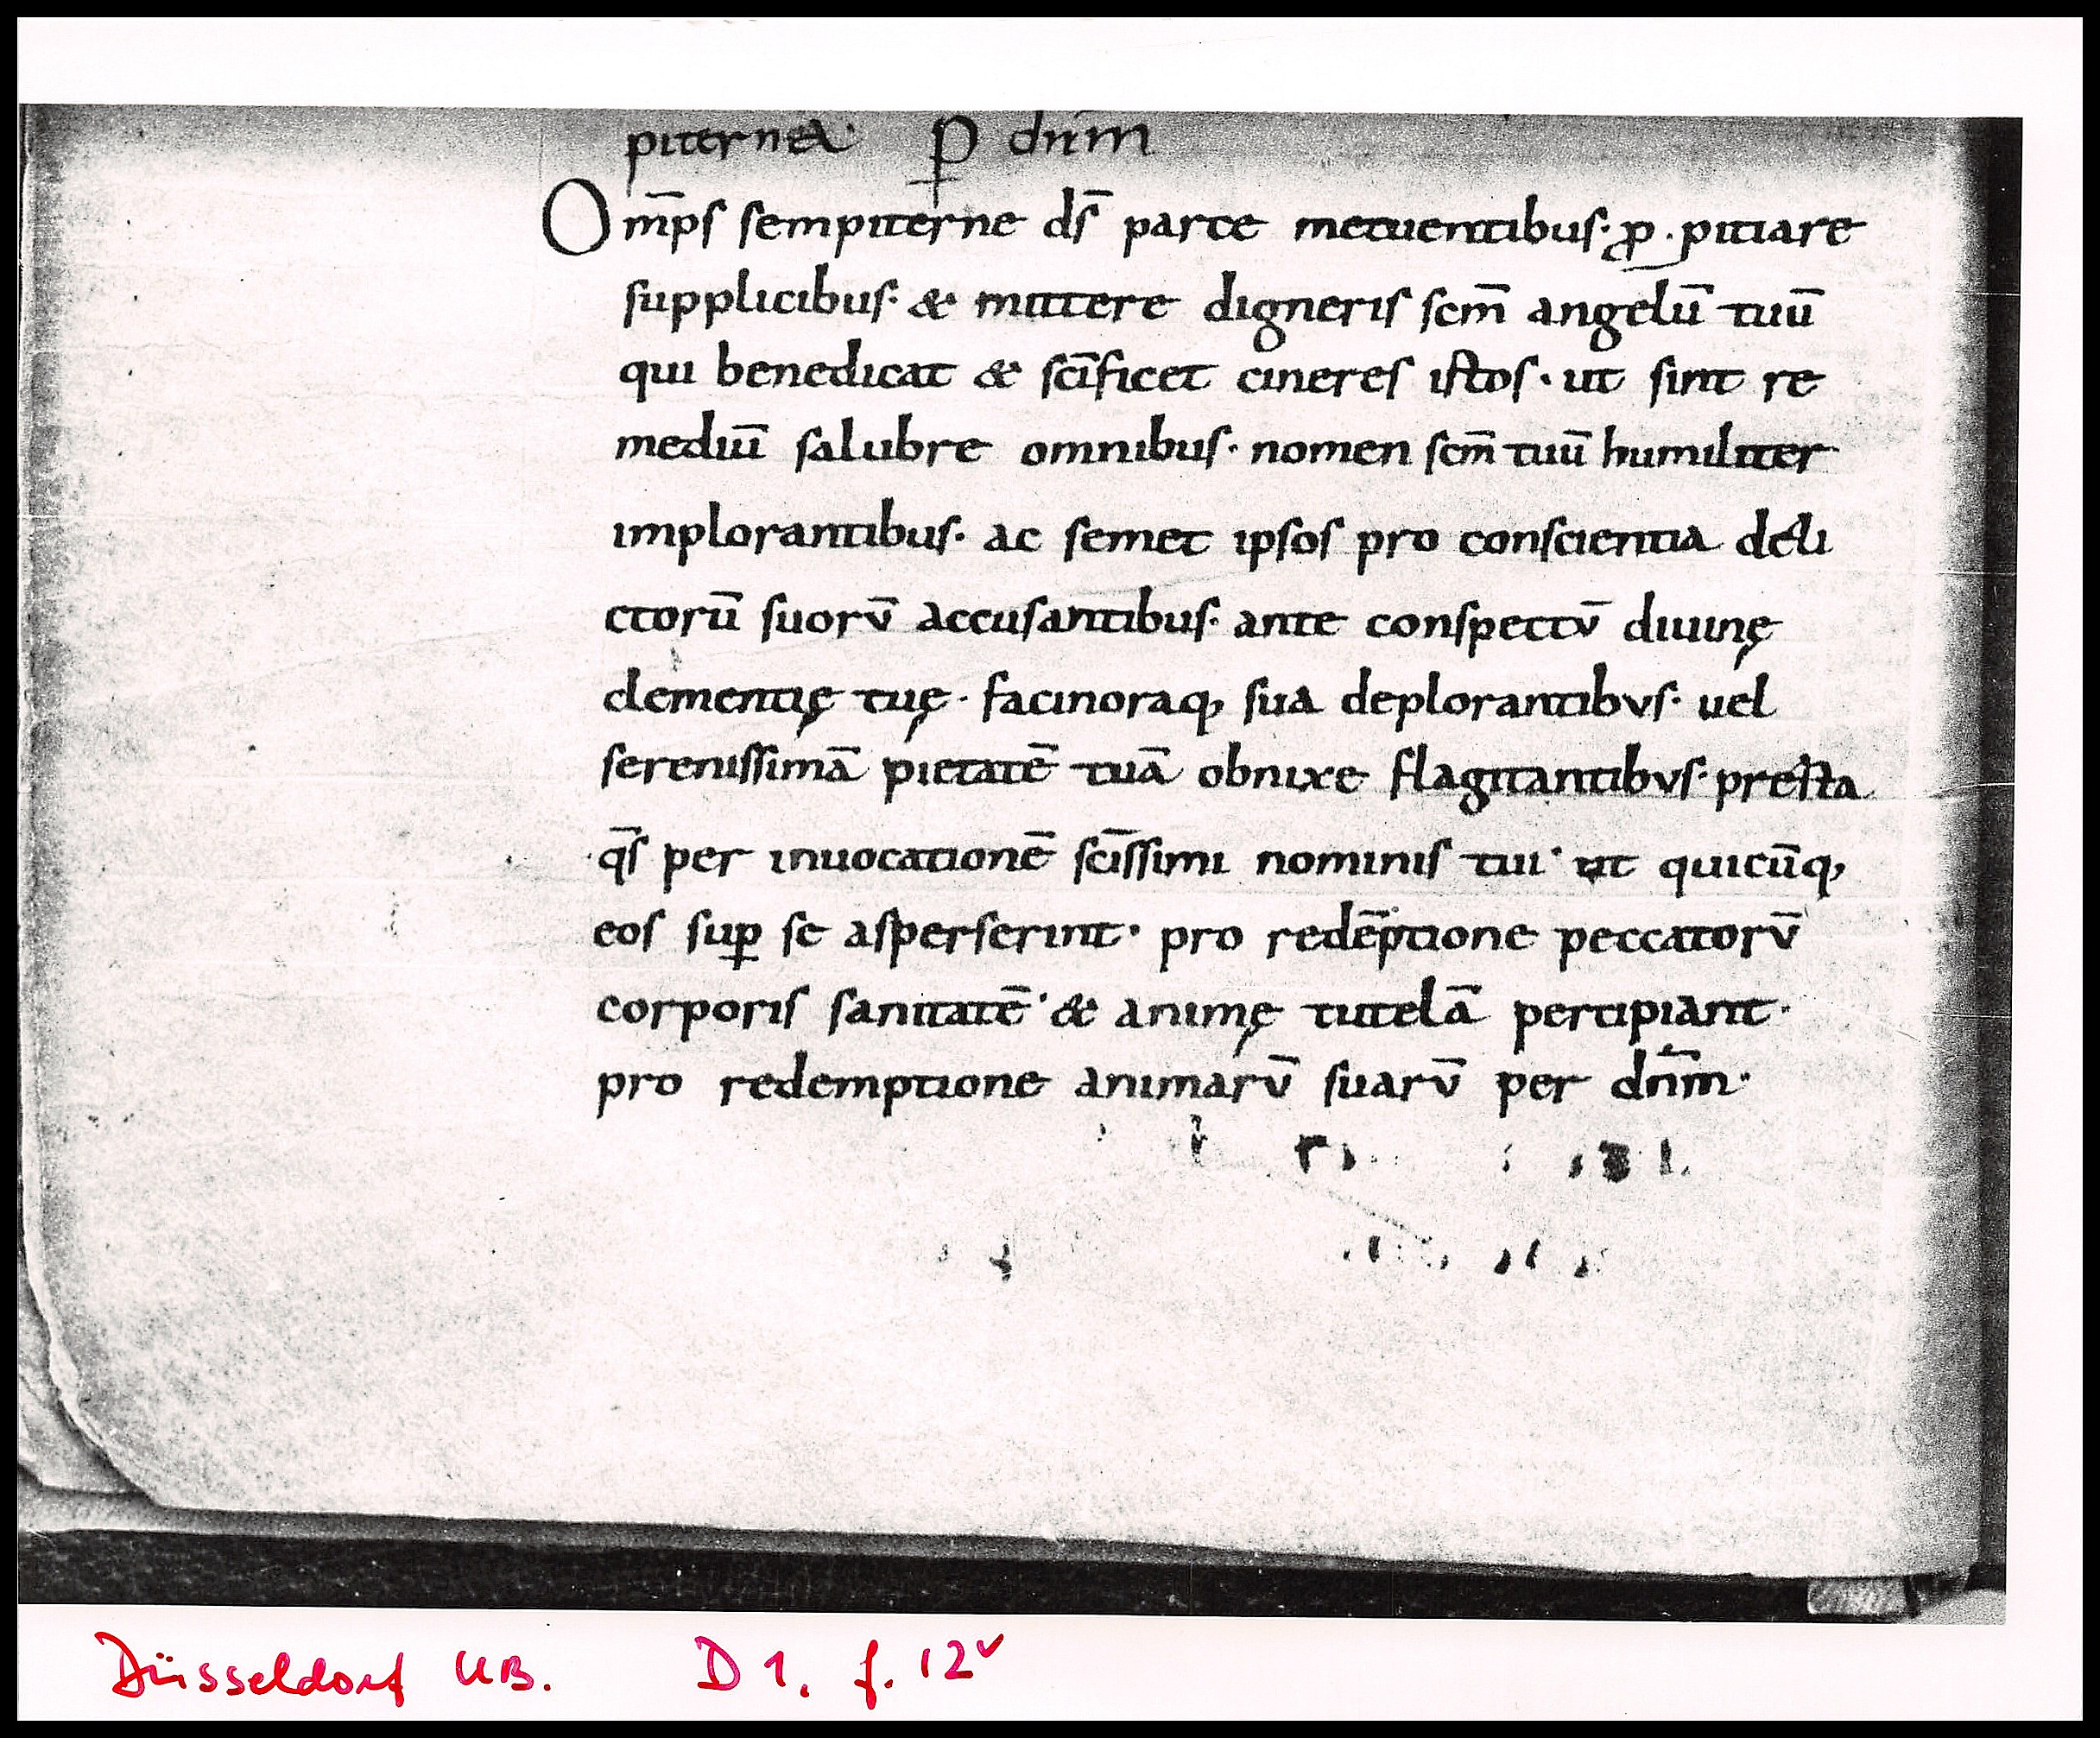 piterna P dn̄m
Om̄ps sempiterne ds̄ parce metuentibus· ꝓ·pitiare
supplicibus· & mittere digneris scm̄ angelū tuū
qui benedicat & scīficet cineres istos· ut sint re
mediū salubre omnibus· nomen scm̄ tuū humiliter
implorantibus· ac semet ipsos pro conscientia deli
ctorū suorv̄ accusantibus· ante conspectv̄ diuinę
clementię tuę· facinoraq, sua deplorantibvs· uel
serenissimā pietatē tuā obnixe flagitantibvs· presta
qs̄ per inuocationē scīssimi nominis tui· ut quicūq,
eos suꝑ se asperserint· pro redēptione peccatorv̄
corporis sanitatē· & animę tutelā percipiant·
pro redemptione animarv̄ suarv̄ per dn̄m·
Düsseldorf UB. D 1. f. 12v